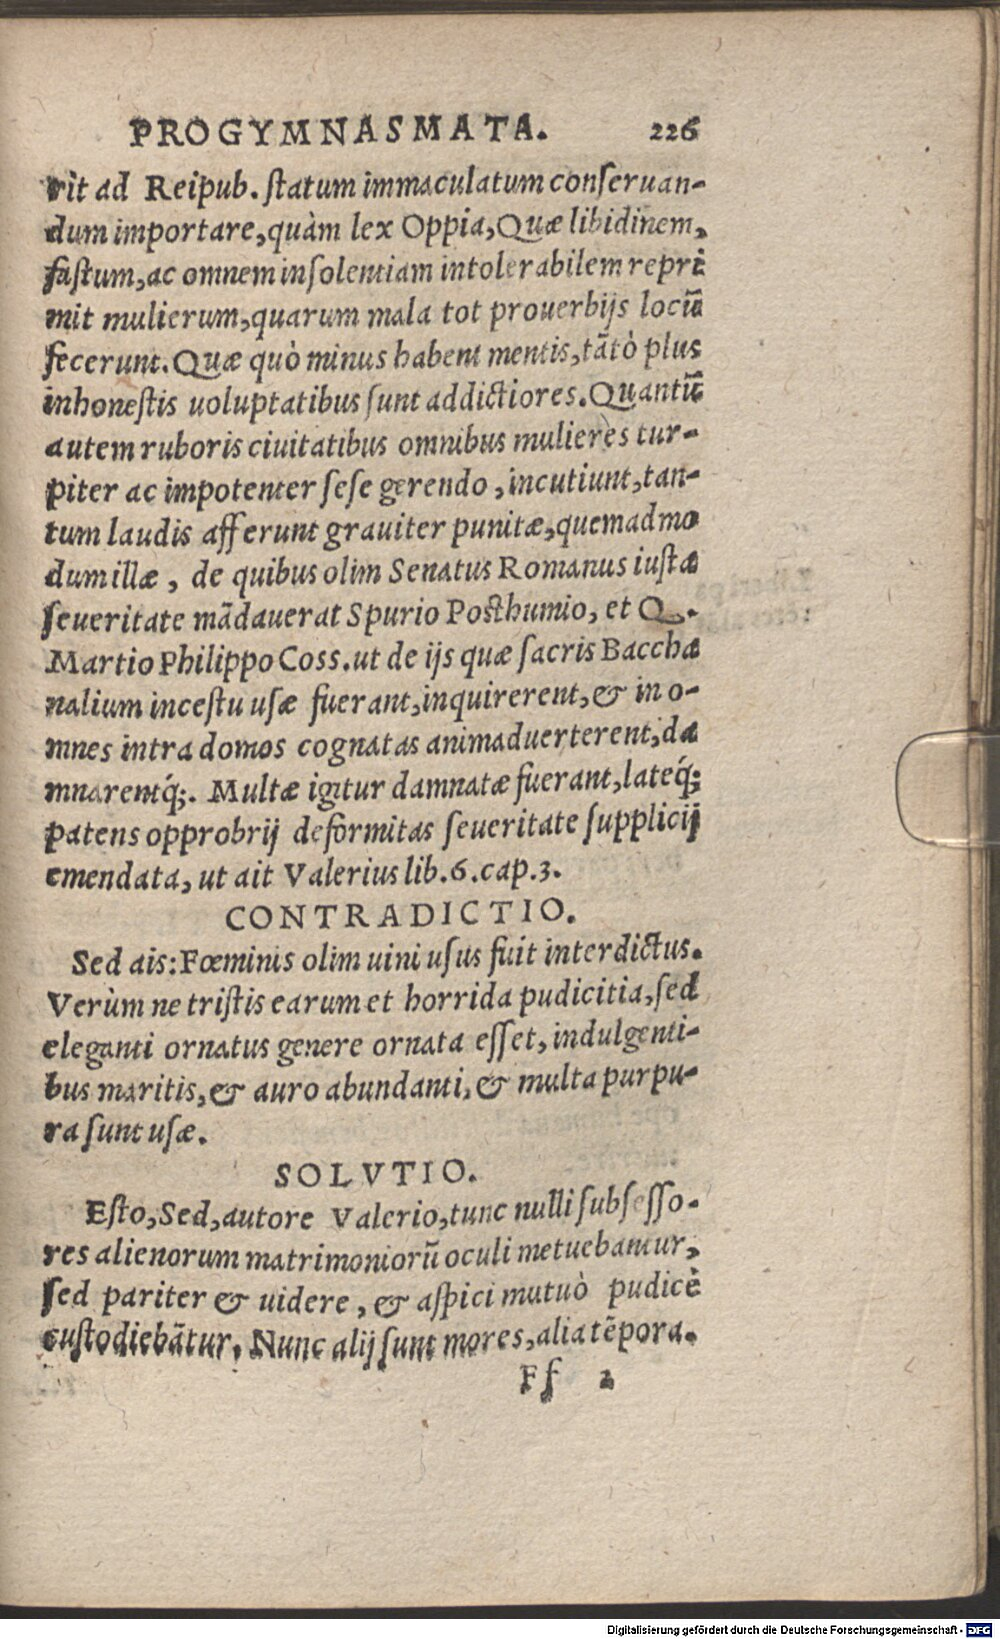 PROGYMNASMATA. 226
rit ad Reipub. statum immaculatum conseruan-
dum importare, quàm lex Oppia, Quæ libidinem,
fastum, ac omnem insolentiam intolerabilem repri
mit mulierum, quarum mala tot prouerbijs locũ
fecerunt. Quæ quò minus habent mentis, tãtò plus
inhonestis uoluptatibus sunt addictiores. Quantũ
autem ruboris ciuitatibus omnibus mulieres tur-
piter ac impotenter sese gerendo, incutiunt, tan-
tum laudis afferunt grauiter punitæ, quemadmo
dum illæ, de quibus olim Senatus Romanus iusta
seueritate mãdauerat Spurio Posthumio, et Q.
Martio Philippo Coss. ut de ijs quæ sacris Baccha
nalium incestu usæ fuerant, inquirerent, & in o-
mnes intra domos cognatas animaduerterent, da
mnarentq́;. Multæ igitur damnatæ fuerant, lateq́;
patens opprobrij deformitas seueritate supplicij
emendata, ut ait Valerius lib. 6. cap. 3.
CONTRADICTIO.
Sed ais: Fœminis olim uini usus fuit interdictus.
Verùm ne tristis earum et horrida pudicitia, sed
eleganti ornatus genere ornata esset, indulgenti-
bus maritis, & auro abundanti, & multa purpu-
ra sunt usæ.
SOLVTIO.
Esto, Sed, autore Valerio, tunc nulli subsesso-
res alienorum matrimoniorũ oculi metuebantur,
sed pariter & uidere, & aspici mutuò pudicè
custodiebãtur. Nunc alij sunt mores, alia tẽpora.
Ff 2
Digitalisierung gefördert durch die Deutsche Forschungsgemeinschaft - DFG